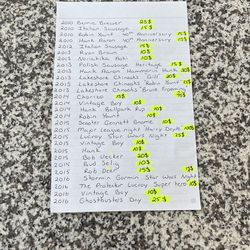 2010 Bernie Brewer 25$
2010 Italian Sausage 15$
2010 Robin Yount 40th Anniversary 15$
2010 Hank Aaron 40th Anniversary 15$
2012 Italian Sausage 15$
2013 Ryan Braun 10$
2013 Norichika Aoki 10$
2013 Polish Sausage Heritage 15$
2013 Hank Aaron Hammerin Hank
2013 Lakeshore Chinooks Gill
2013 Lakeshore Chinooks
2013 Lakeshore Chinooks Bruce Froemming
2014 Chorizo 15$
2014 Vintage Boy 10$
2014 Hank Ballpark Pup 10$
2014 Robin Yount 10$
2015 Scooter Gennett Gnome 10$
2015 Major League night Harry Doyle
2015 Lucroy Star Wars Night 25$
2015 Vintage Boy 10$
2015 Hank 10$
2015 Bob Uecker 20$
2015 Bud Selig 10$
2015 Rob Deer 15$
2016 Stormin Gorman Star Wars Night
2016 The Protector Lucroy Super hero 10$
2016 Vintage Boy 10$
2016 Ghostbusters Day 25$